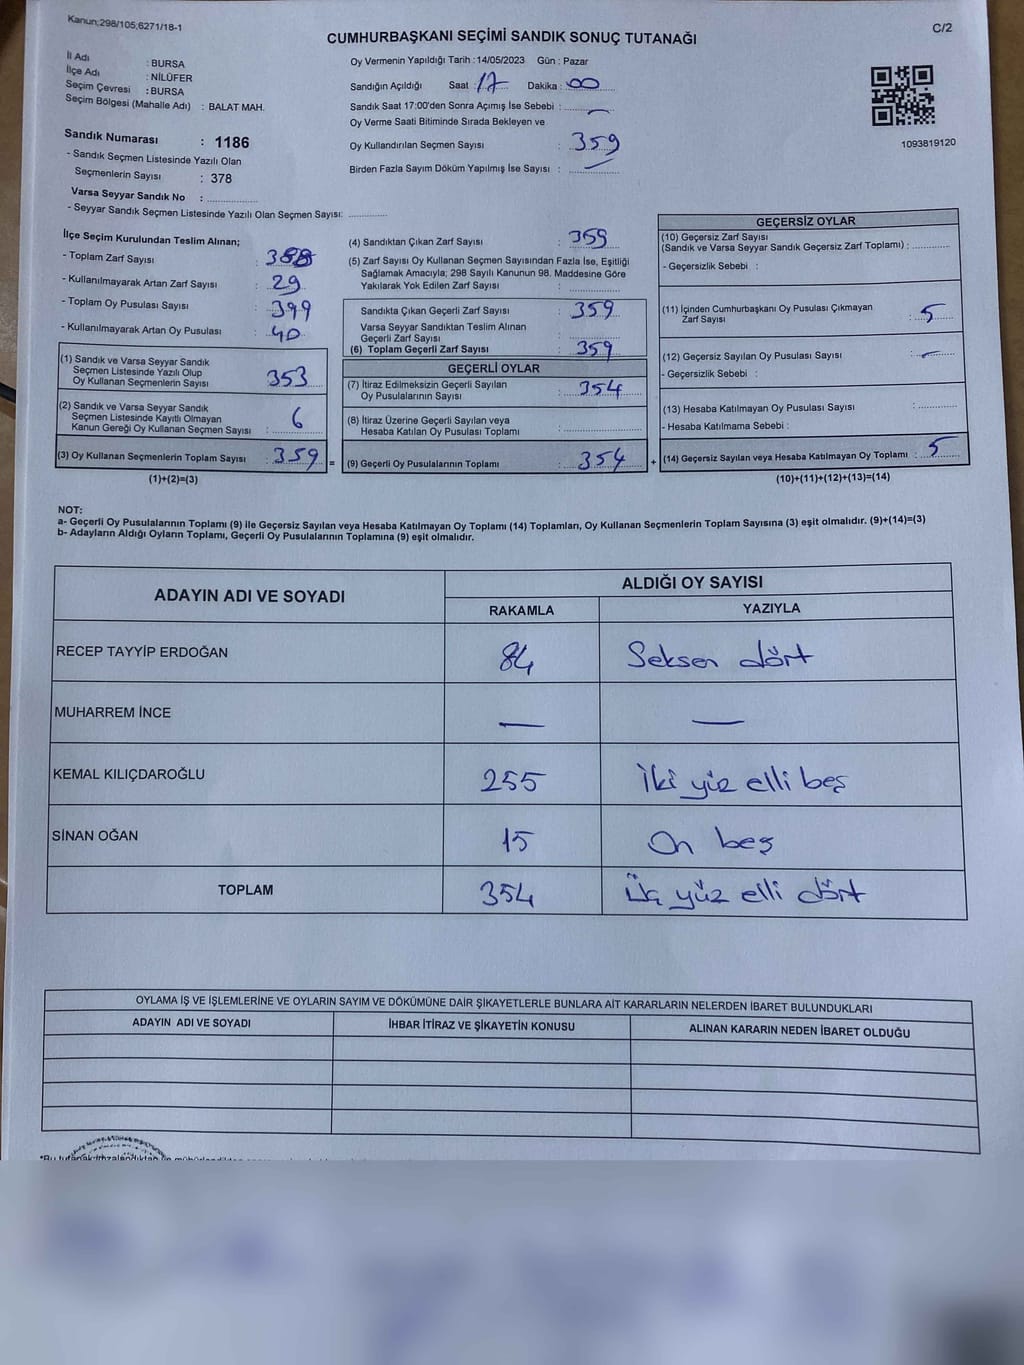 Kanun;298/105;6271/18-1
C/2
CUMHURBAŞKANI SEÇİMİ SANDIK SONUÇ TUTANAĞI
İl Adı : BURSA
İlçe Adı : NİLÜFER
Seçim Çevresi : BURSA
Seçim Bölgesi (Mahalle Adı) : BALAT MAH.
Sandık Numarası : 1186
- Sandık Seçmen Listesinde Yazılı Olan
Seçmenlerin Sayısı : 378
Varsa Seyyar Sandık No :
- Seyyar Sandık Seçmen Listesinde Yazılı Olan Seçmen Sayısı:
Oy Vermenin Yapıldığı Tarih : 14/05/2023 Gün : Pazar
Sandığın Açıldığı Saat : 17 Dakika : 00
Sandık Saat 17:00'den Sonra Açımış İse Sebebi : —
Oy Verme Saati Bitiminde Sırada Bekleyen ve
Oy Kullandırılan Seçmen Sayısı : 359
Birden Fazla Sayım Döküm Yapılmış İse Sayısı : —
1093819120
İlçe Seçim Kurulundan Teslim Alınan;
- Toplam Zarf Sayısı : 388
- Kullanılmayarak Artan Zarf Sayısı : 29
- Toplam Oy Pusulası Sayısı : 399
- Kullanılmayarak Artan Oy Pusulası : 40
(1) Sandık ve Varsa Seyyar Sandık
Seçmen Listesinde Yazılı Olup
Oy Kullanan Seçmenlerin Sayısı 353
(2) Sandık ve Varsa Seyyar Sandık
Seçmen Listesinde Kayıtlı Olmayan
Kanun Gereği Oy Kullanan Seçmen Sayısı : 6
(3) Oy Kullanan Seçmenlerin Toplam Sayısı : 359 =
(1)+(2)=(3)
(4) Sandıktan Çıkan Zarf Sayısı : 359
(5) Zarf Sayısı Oy Kullanan Seçmen Sayısından Fazla İse, Eşitliği
Sağlamak Amacıyla; 298 Sayılı Kanunun 98. Maddesine Göre
Yakılarak Yok Edilen Zarf Sayısı :
Sandıkta Çıkan Geçerli Zarf Sayısı : 359
Varsa Seyyar Sandıktan Teslim Alınan
Geçerli Zarf Sayısı :
(6) Toplam Geçerli Zarf Sayısı : 359
GEÇERLİ OYLAR
(7) İtiraz Edilmeksizin Geçerli Sayılan
Oy Pusulalarının Sayısı : 354
(8) İtiraz Üzerine Geçerli Sayılan veya
Hesaba Katılan Oy Pusulası Toplamı :
(9) Geçerli Oy Pusulalarının Toplamı : 354 +
GEÇERSİZ OYLAR
(10) Geçersiz Zarf Sayısı
(Sandık ve Varsa Seyyar Sandık Geçersiz Zarf Toplamı) :
- Geçersizlik Sebebi :
(11) İçinden Cumhurbaşkanı Oy Pusulası Çıkmayan
Zarf Sayısı : 5
(12) Geçersiz Sayılan Oy Pusulası Sayısı : —
- Geçersizlik Sebebi :
(13) Hesaba Katılmayan Oy Pusulası Sayısı :
- Hesaba Katılmama Sebebi :
(14) Geçersiz Sayılan veya Hesaba Katılmayan Oy Toplamı : 5
(10)+(11)+(12)+(13)=(14)
NOT:
a- Geçerli Oy Pusulalarının Toplamı (9) ile Geçersiz Sayılan veya Hesaba Katılmayan Oy Toplamı (14) Toplamları, Oy Kullanan Seçmenlerin Toplam Sayısına (3) eşit olmalıdır. (9)+(14)=(3)
b- Adayların Aldığı Oyların Toplamı, Geçerli Oy Pusulalarının Toplamına (9) eşit olmalıdır.
ADAYIN ADI VE SOYADI ALDIĞI OY SAYISI
RAKAMLA YAZIYLA
RECEP TAYYİP ERDOĞAN 84 Seksen dört
MUHARREM İNCE — —
KEMAL KILIÇDAROĞLU 255 İki yüz elli beş
SİNAN OĞAN 15 On beş
TOPLAM 354 Üç yüz elli dört
OYLAMA İŞ VE İŞLEMLERİNE VE OYLARIN SAYIM VE DÖKÜMÜNE DAİR ŞİKAYETLERLE BUNLARA AİT KARARLARIN NELERDEN İBARET BULUNDUKLARI
ADAYIN ADI VE SOYADI İHBAR İTİRAZ VE ŞİKAYETİN KONUSU ALINAN KARARIN NEDEN İBARET OLDUĞU